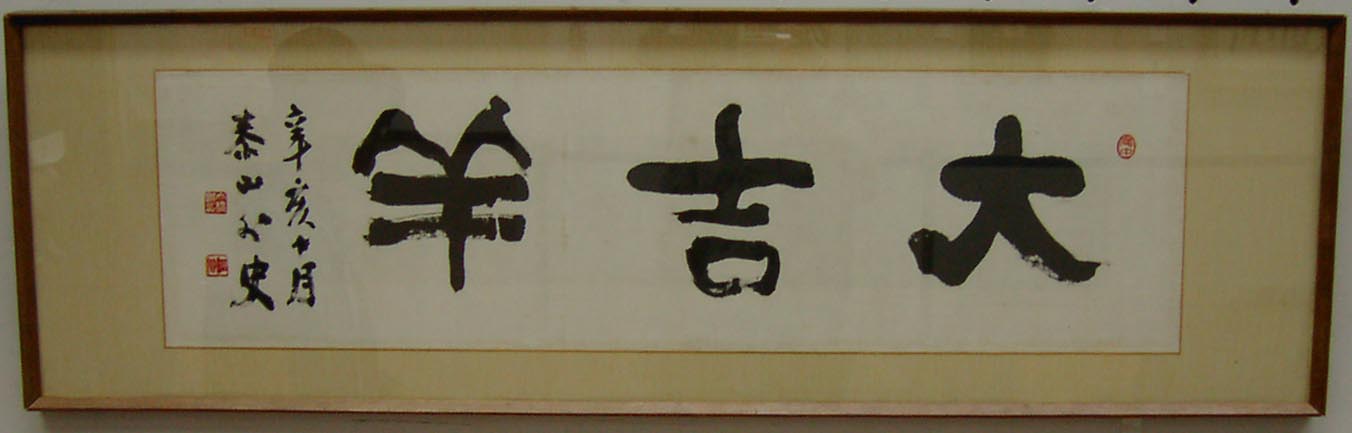 大吉羊
辛亥十月
泰山外史